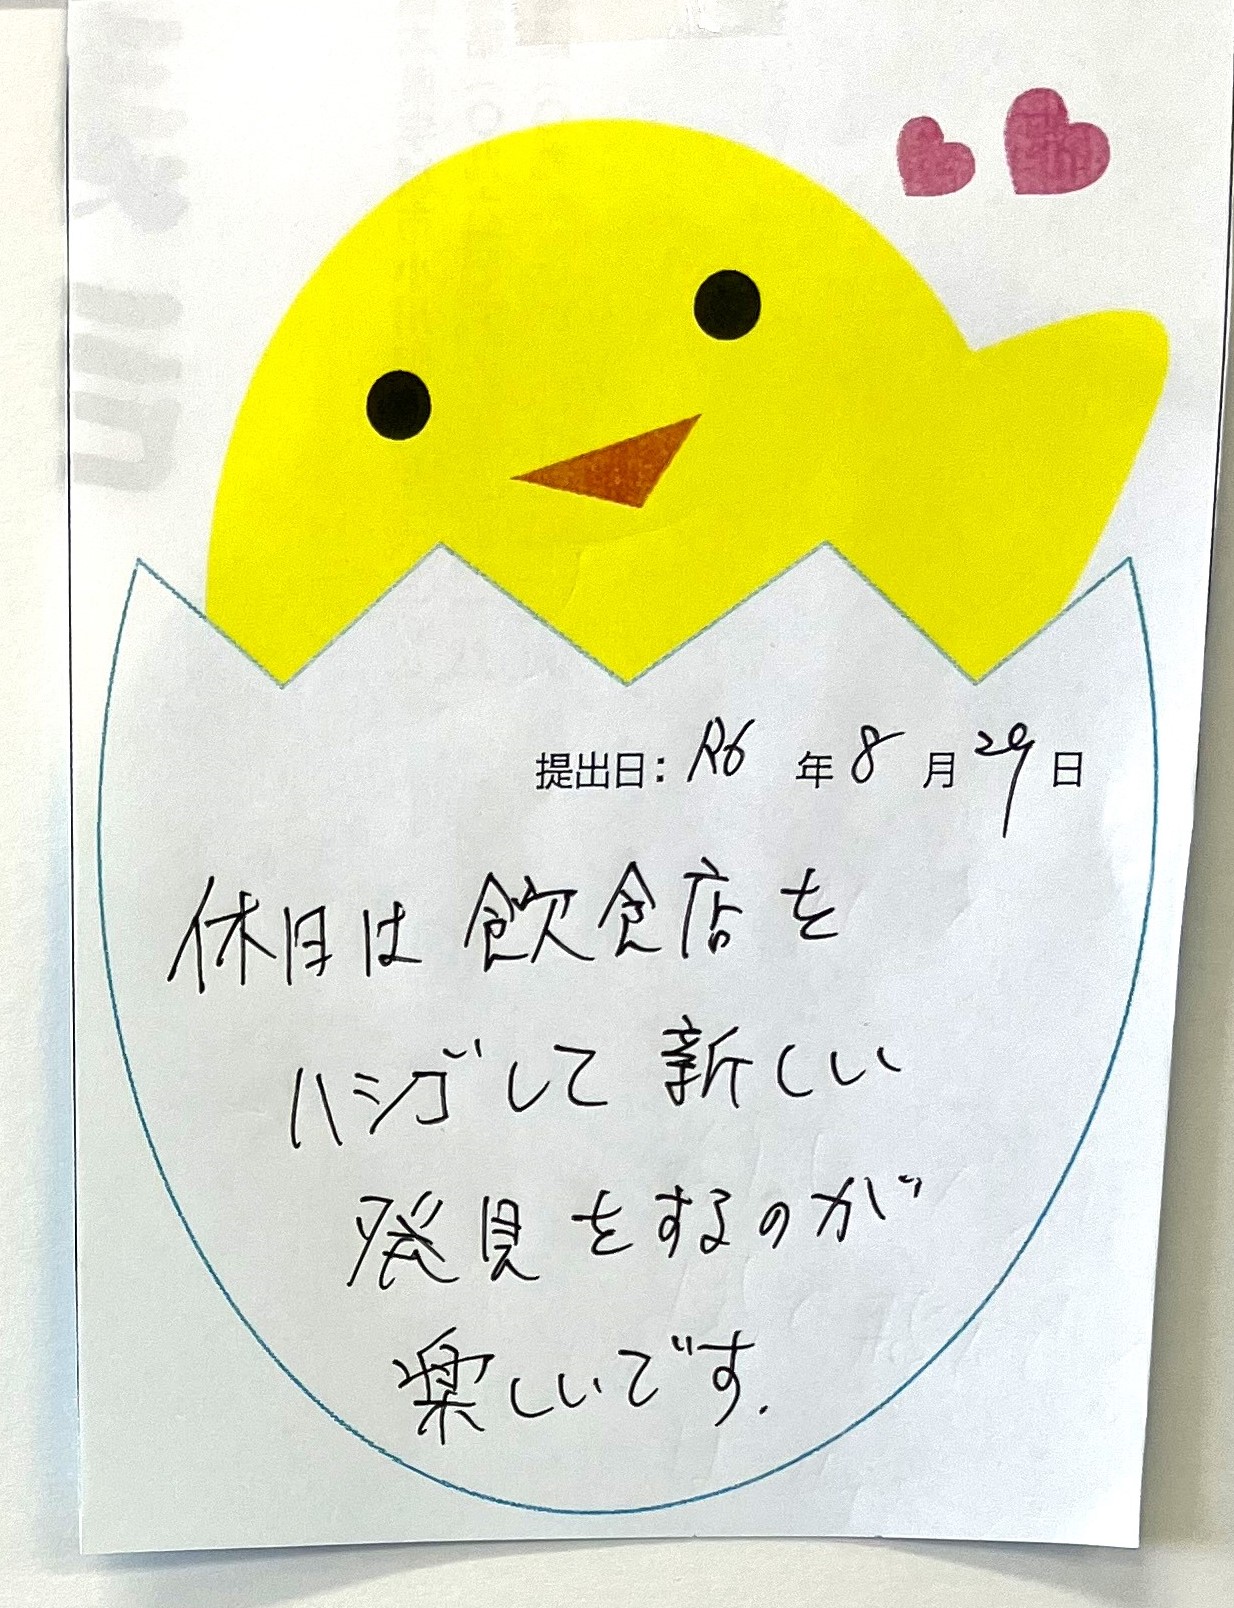 提出日: R6 年 8 月 29 日
休日は飲食店を
ハシゴして新しい
発見をするのが
楽しいです.